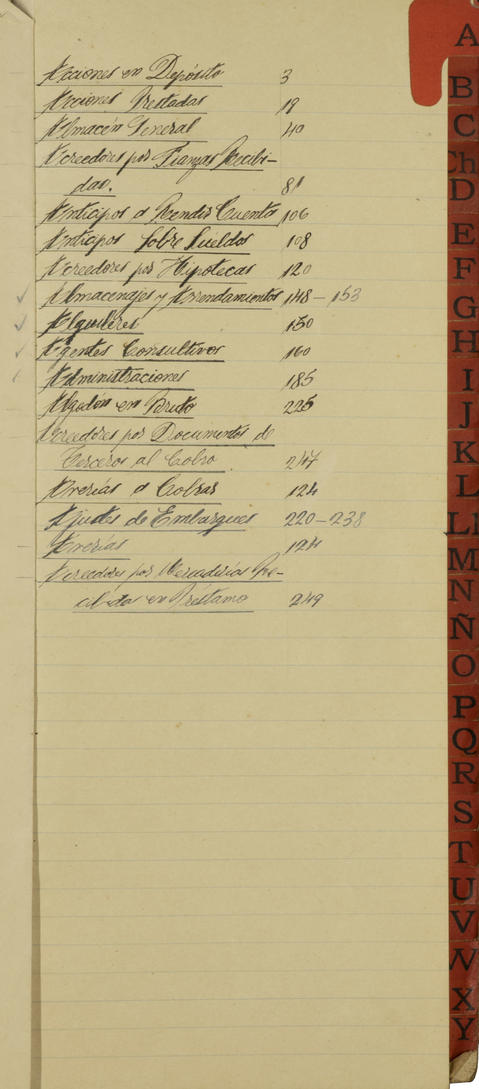 Acciones en Depósito 3
Acciones Prestadas 19
Almacén General 40
Acreedores por Fianzas Recibi-
das. 81
Anticipos a Rendir Cuenta 106
Anticipos Sobre Sueldos 108
Acreedores por Hipotecas 120
Almacenajes y Arrendamientos 148 - 153
Alquileres 150
Agentes Consultivos 160
Administraciones 185
Algodón en Bruto 225
Acreedores por Documentos de
Terceros al Cobro. 247
Averías a Cobrar 124
Ajustes de Embarques 220 - 238
Averías 124
Acreedores por Mercaderías Re-
cibidas en Préstamo 249
A
B
C
Ch
D
E
F
G
H
I
J
K
L
Ll
M
N
Ñ
O
P
Q
R
S
T
U
V
W
X
Y